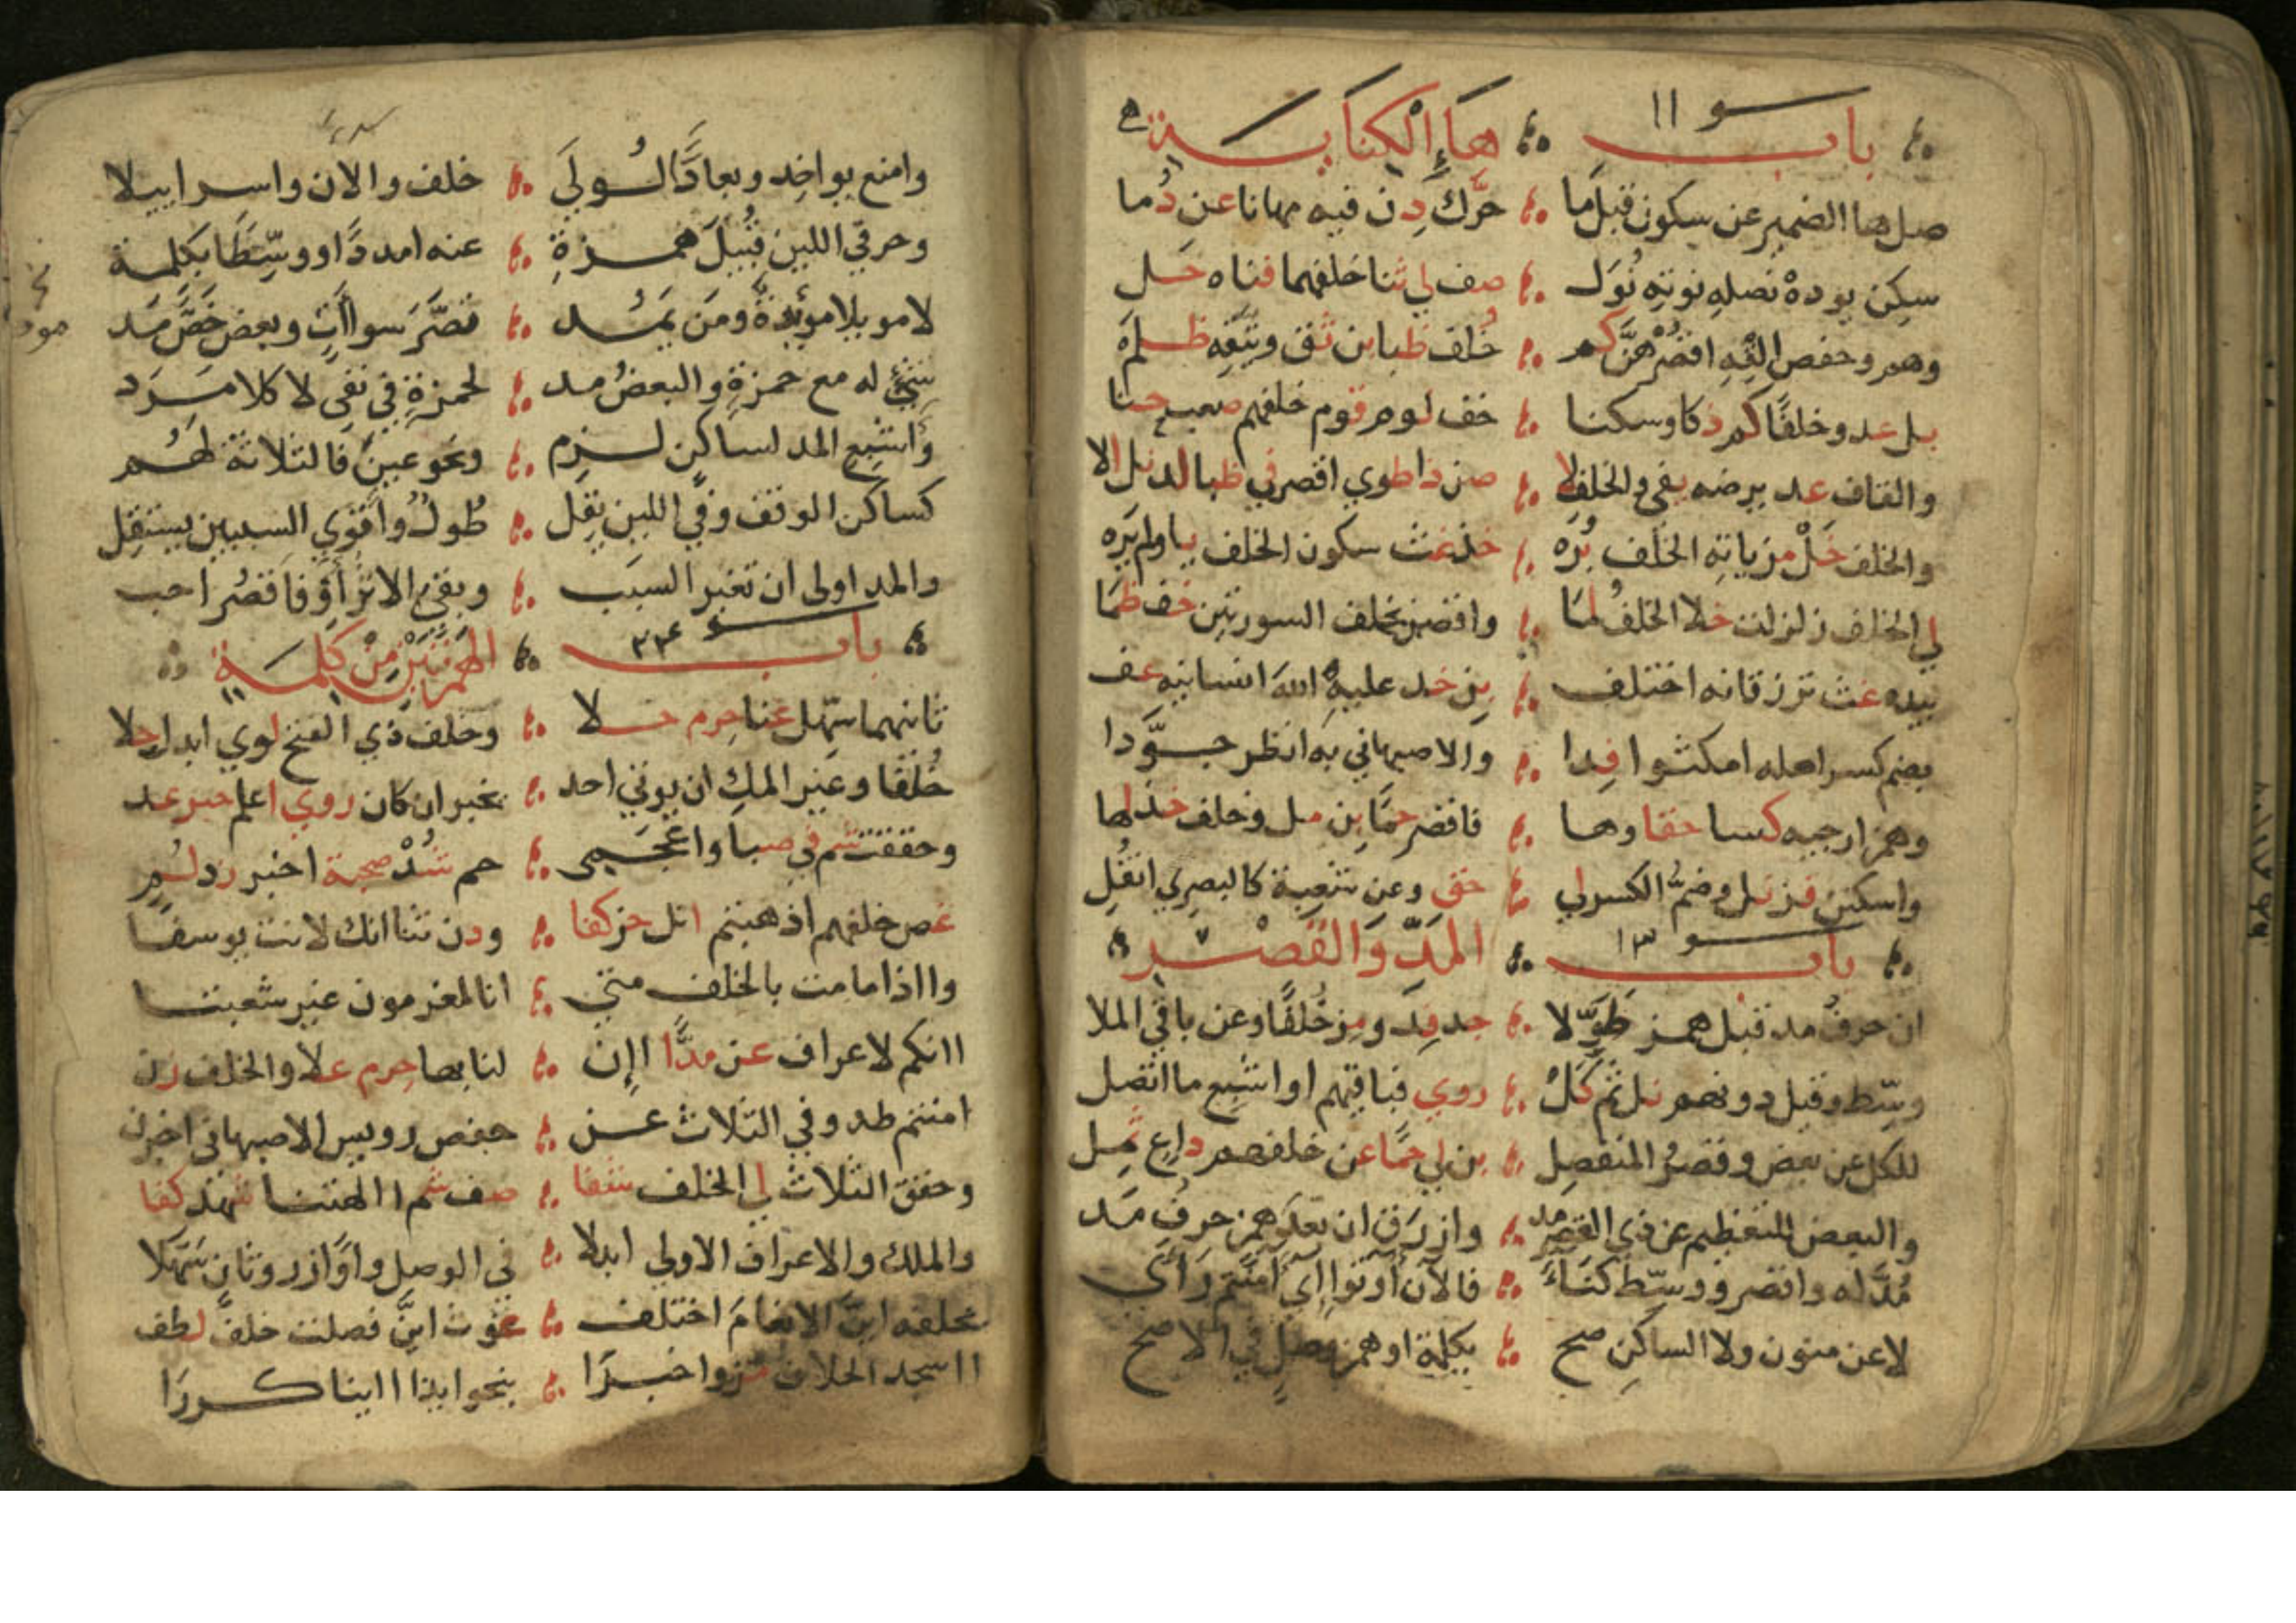 باب هاء الكناية
صل ها الضمير عن سكون قبل ما حرك دن فيه مهانا عن دما
سكن يوده نصله نوته نول صف لي ثنا خلفهما فناه حل
وهم وحفص القه اقصرهن كم خلف ظبا بن ثق ويتقه ظلم
بل عد وخلفا كم ذكا وسكنا خف لوم قوم خلفهم صعب حنا
والقاف عد يرضه يفي والخلف لا صن ذا طوي اقصر في ظبا لذ نل الا
والخلف خل مز ياته الخلف بره خذ غث سكون الخلف يا ولم يره
لي الخلف زلزلت خلا الخلف لما واقصر بخلف السورتين خف ظما
بيده غث ترزقانه اختلف بن خذ عليه الله انسانيه عف
بضم كسر اهله امكثوا فدا والاصبهاني به انظر جودا
وهمز ارجيه كسا حقا وها فاقصر حما بن مل وخلف خذ لها
واسكنن فز نل وضم الكسر لي حق وعن شعبة كالبصري انقل
باب المد والقصر
ان حرف مد قبل همز طولا جد فد ومز خلفا وعن باقي الملا
وسط وقيل دونهم نل ثم كل روي فباقيهم او اشبع ما اتصل
للكل عن بعض وقصر المنفصل بن لي حما عن خلفهم داع ثمل
والبعض للتعظيم عن ذي القصر مد وازرق ان بعد همز حرف مد
مد له واقصر ووسط كناء فالان اوتوا اي اامنتم راي
لا عن منون ولا الساكن صح بكلمة او همز وصل في الاصح
وامنع يواخذ وبعادا لولي خلف والان واسراييلا
وحرفي اللين قبيل همزة عنه امددا ووسطا بكلمة
لا موئلا موءدة ومن يمد قصر سوات وبعض خص مد
شيء له مع حمزة والبعض مد لحمزة في نفي لا كلا مرد
واشبع المد لساكن لزم ونحو عين فالثلاثة لهم
كساكن الوقف وفي اللين يقل طول واقوي السببين يستقل
والمد اولى ان تغير السبب وبقي الاثر او فاقصر احب
باب الهمزتين من كلمة
ثانيهما سهل غنا حرم حلا وخلف ذي الفتح لوي ابدل جلا
خلفا وغير المك ان يوتي احد يخبر ان كان روي اعلم حبر عد
وحققت شم في صبا واعجمي حم شد صحبة اخبر زد لم
غص خلفهم اذهبتم اتل حز كفا ودن ثنا انك لانت يوسفا
وااذا ما مت بالخلف متي انا لمغرمون غير شعبتا
اانكم لاعراف عن مدا اان لنا بها حرم علا والخلف زن
امنتم طه وفي الثلاث عن حفص رويس الاصبهاني اخبرن
وحقق الثلاث لي الخلف شفا صف شم االهتنا شهد كفا
والملك والاعراف الاولى ابدلا في الوصل واوا زر وثان سهلا
بخلفه ائن الانعام اختلف غوث ائن فصلت خلف لطف
ااسجد الخلاف مز واخبرا بنحو ايذا اينا كررا